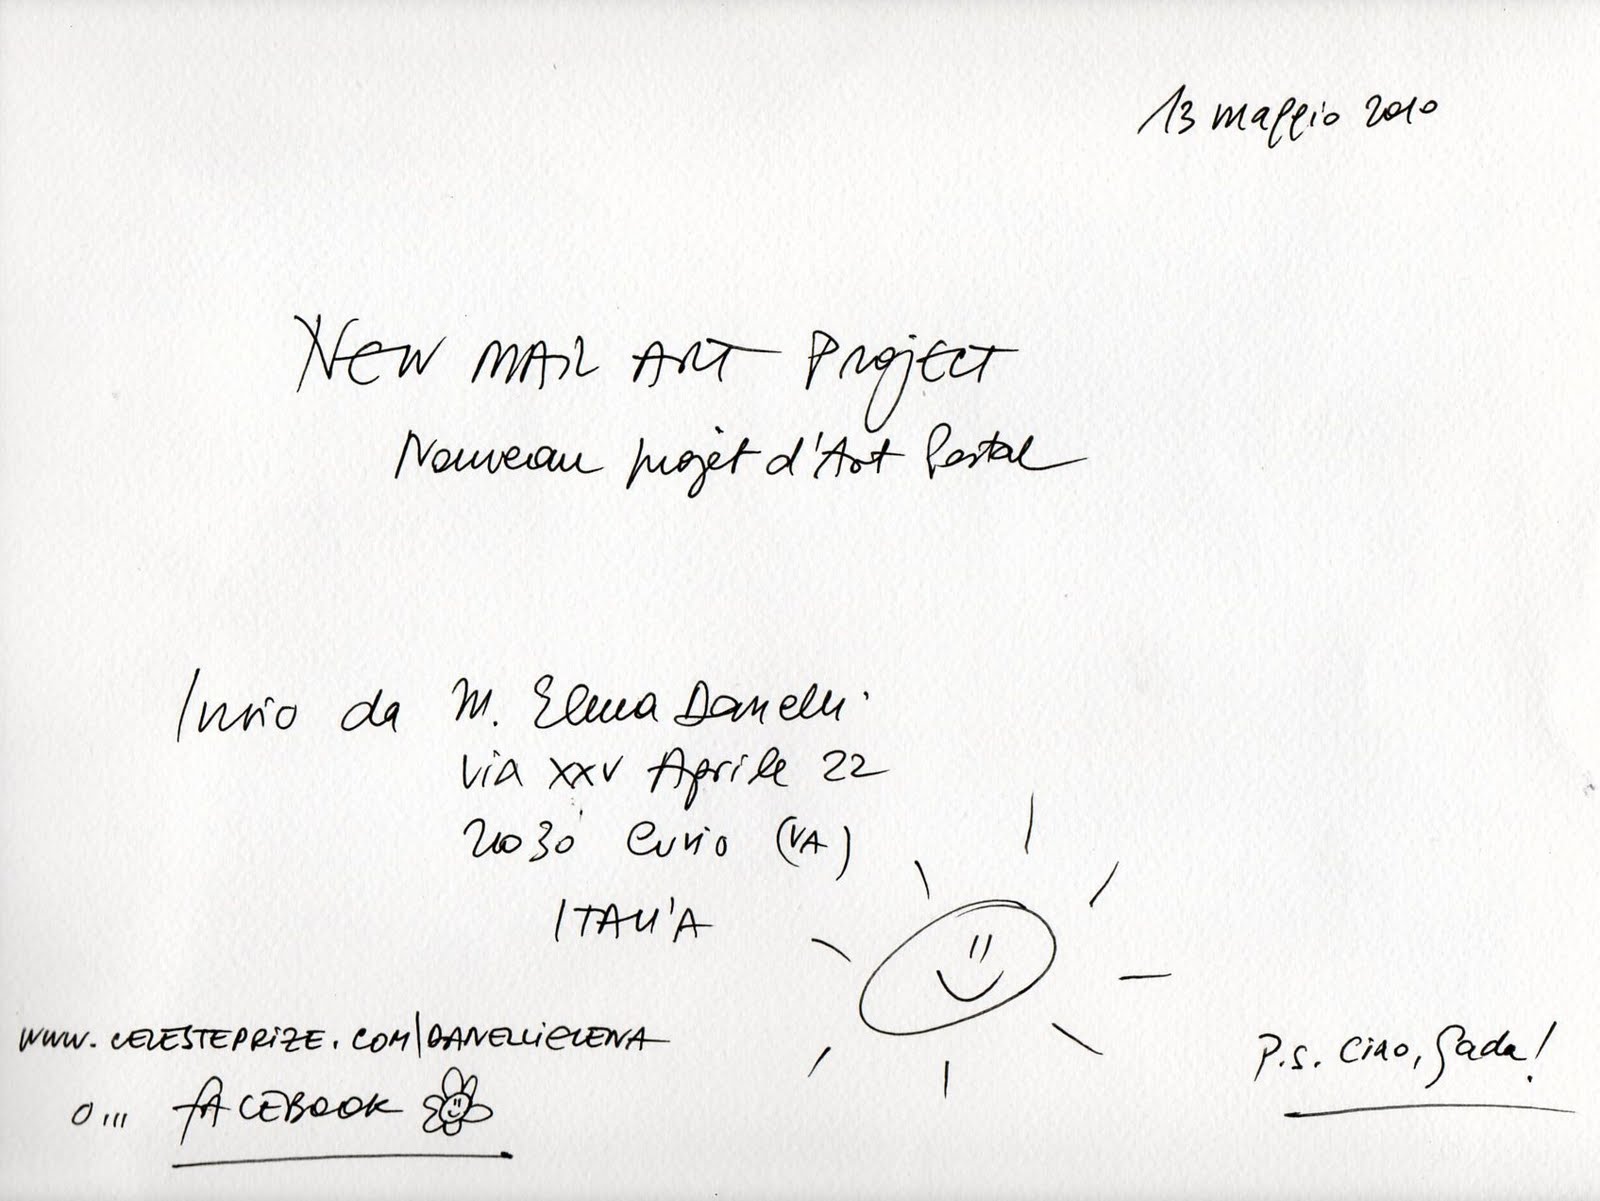 13 maggio 2010
NEW MAIL ART PROJECT
Nouveau projet d'Art Postal
Invio da M. Elena Danelli
via XXV Aprile 22
21030 Cuvio (VA)
ITALIA
www.CELESTEPRIZE.COM/DANELLIELENA
O... FACEBOOK
P.S. Ciao, Gada!